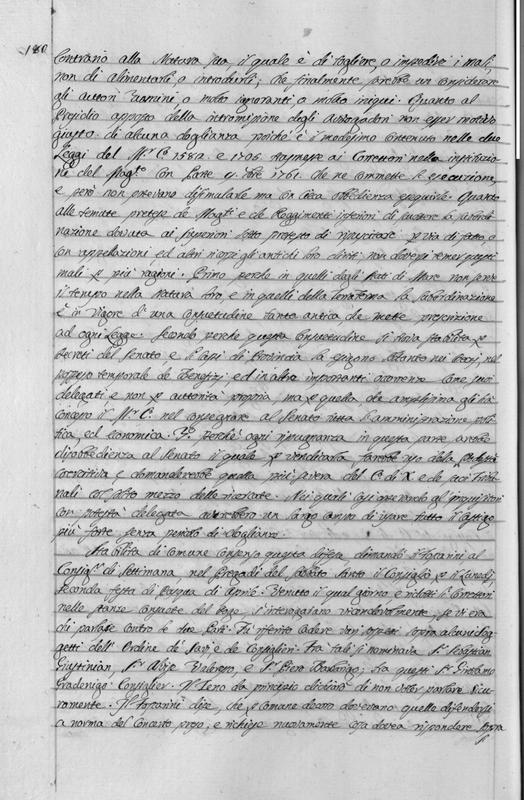 180
contrario alla Natura sua, il quale è di togliere, o impedire i mali,
non di alimentarli, o introdurli; che finalmente sarebbe un considerare
gli autori uomini, o molto ignoranti, o molto iniqui. Quanto al
Presidio apposto della intromissione degli Avogadori non esser motivo
giusto di alcuna doglianza poichè è il medesimo contenuto nelle due
Leggi del M.r C. 1582. e 1705. trasmesse ai Correttori nella
ne del Mag.to con Parte 1761. che ne commette l'esecuzione,
e però non potevano dissimularla ma con cieca obbedienza eseguirla. Quanto
alle temute pretese de Mag.ti e de Reggimenti inferiori di scuotere la subordi
nazione dovuta ai Superiori sotto pretesto di per via di fatto, o
con appellazioni ed altri non doversi temer questi
mali per più ragioni. Primo perchè in quelli dagli Stati di Mare non
il tempo nella Natura loro, e in quelli della Terraferma la subordinazione
è in vigore d'una consuetudine tanto antica, che mette prescrizione
ad ogni Legge. Secondo perchè questa consuetudine si trova stabilita per
Decreti del Senato e i Capi di Provincia la godono soltanto nei Dazj, nel
possesso temporale de Benefizj ed in altre importanti occorrenze come suoi
delegati e non per autorità propria, ma per quella che amplissima gli ha
concesso il M.r C. nel consegnare al Senato tutta l'amministrazione poli
tica, ed economica. 3.o perchè ogni ripugnanza in questa parte sarebbe
disobbedienza al Senato il quale per vendicarla farebbe uso della
coercitiva e domanderebbe quella più severa del C. di X. e de suoi Tribu
nali col solito mezzo delle ricercate. Nei quali casi
con potestà delegata avrebbero un largo campo di usare tutto il castigo
più forte senza pericolo di doglianze.
Stabilita di comune consenso questa difesa dimandò il Foscarini al
Consigl.r di Settimana, nel Pregadi del Sabato Santo il Consiglio per il Lunedì
seconda festa di Pasqua di Aprile. Venuto il qual giorno e ridotti li Correttori
nelle stanze consuete del Doge, s'interrogarono vicendevolmente se vi era
chi parlasse contro le due Parti. Fu riferito cadere varj sospetti sopra alcuni sog
getti dell'Ordine de Savj e de Consiglieri. Fra tali si nominava S.r Sebastian
Giustinian, S.r Alvise Valaresso, e S.r Piero Barbarigo; fra questi S.r Girolamo
Gradenigo Consiglier. Il Zeno da principio dichiarò di non voler parlare sicu
ramente. Il Foscarini disse, che per comune decoro dovevano quelle difendersi
a norma del Concerto preso, e richiese nuovamente cosa dovea rispondere sopra